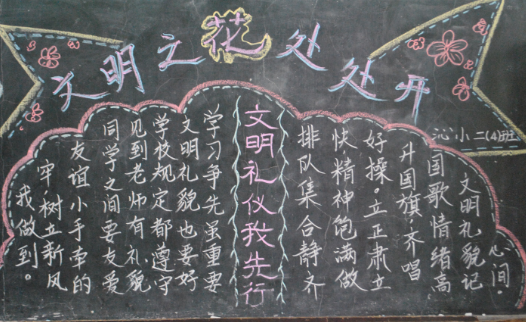 文明之花处处开
沁小二(4)班
文明礼仪我先行
学习争先最重要
文明礼貌也要好
学校规定都遵守
见到老师有礼貌
同学之间要友爱
友谊小手牵的
牢树立新风
我做到。
排队集合静齐
快精神饱满做
好操。立正肃立
升国旗，齐唱
国歌情绪高
文明礼貌记
心间。